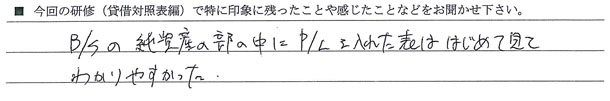 ■ 今回の研修（貸借対照表編）で特に印象に残ったことや感じたことなどをお聞かせ下さい。
B/Sの純資産の部の中にP/Lを入れた表ははじめて見て
わかりやすかった.